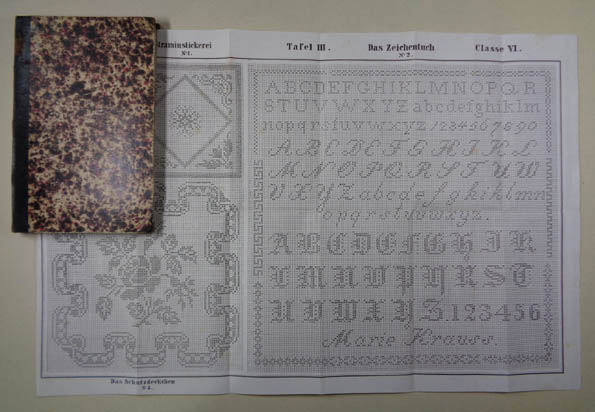 Tafel III. Das Zeichentuch Classe VI.
№ 1. № 2.
ABCDEFGHIJKLMNOPQR
STUVWXYZ abcdefghiklm
nopqrstuvwxyz 1234567890
ABCDEFGHIKL
MNOPQRSTUW
VXYZ abcdefghiklmn
opqrstuvwxyz.
ABCDEFGHIK
LMNOPQRST
UVWXYZ.123456
Marie Krauss.
Das Schutzdeckchen